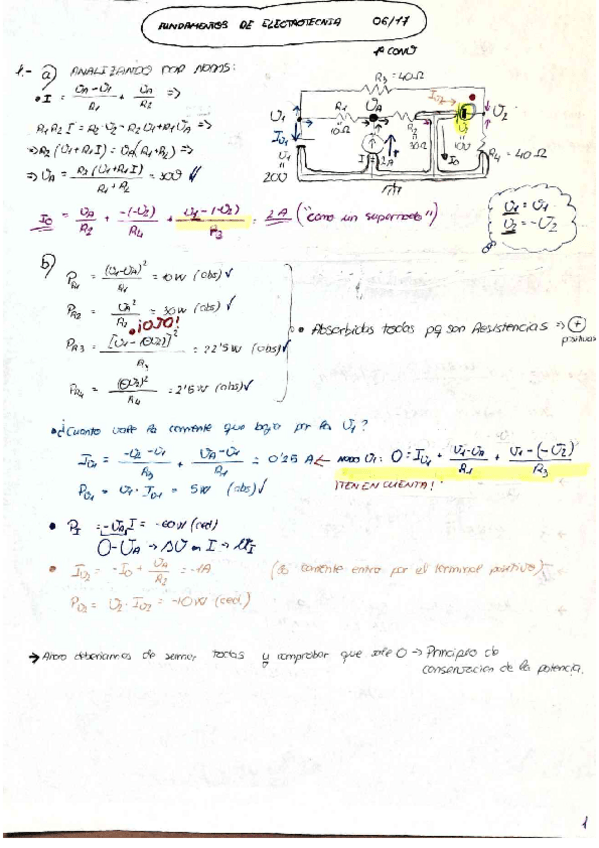 FUNDAMENTOS DE ELECTROTECNIA 06/17
1ª CONV
1.- a) ANALIZANDO POR NODOS:
• I = (U_A - U_1)/R_1 + U_A/R_2 =>
R_1R_2 I = R_2·U_A - R_2 U_1 + R_1 U_A =>
=> R_2 (U_1 + R_1 I) = U_A (R_1 + R_2) =>
=> U_A = R_2 (U_1 + R_1 I)/(R_1 + R_2) = 30V
I_0 = U_A/R_2 + -(-U_2)/R_4 + (U_1 - (-U_2))/R_3 = 2A ("como un supernodo")
R_3 = 40Ω
U_1
R_1
10Ω
U_A
R_2
30Ω
I_U2
U_2
10V
U_2
I_U1
U_1
=
20V
I = 2A
I_0
R_4 = 40Ω
U_1 = U_1
U_2 = -U_2
b) P_R1 = (U_1 - U_A)²/R_1 = 10W (abs) ✓
P_R2 = U_A²/R_2 = 30W (abs) ✓
¡OJO!
P_R3 = [U_1 - (-U_2)]²/R_3 = 22'5W (abs) ✓
P_R4 = (-U_2)²/R_4 = 2'5W (abs) ✓
• Absorbidas todas pq son Resistencias => (+) positivas
• ¿Cuanto vale la corriente que baja por la U_1?
I_U1 = (-U_2 - U_1)/R_3 + (U_A - U_1)/R_1 = 0'25 A ← NODO U_1: 0 = I_U1 + (U_1 - U_A)/R_1 + (U_1 - (-U_2))/R_3
P_U1 = U_1 · I_U1 = 5W (abs) ✓
¡TEN EN CUENTA!
• P_I = -U_A I = -60W (ced)
0 - U_A → ΔU en I → U_I
• I_U2 = -I_0 + U_A/R_2 = -1A (la corriente entra por el terminal positivo)
P_U2 = U_2 · I_U2 = -10W (ced.)
→ Ahora deberiamos de sumar todas y comprobar que sale 0 → Principio de
conservacion de la potencia.
1